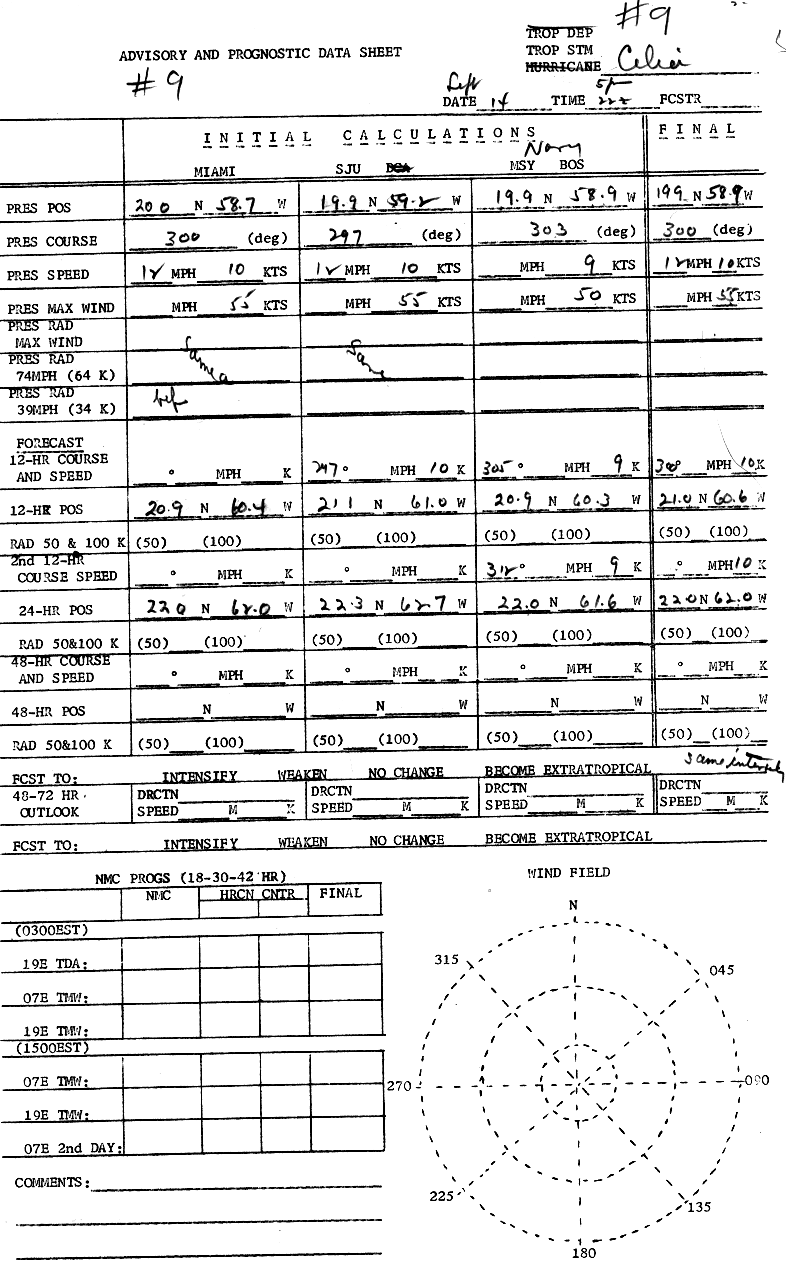 #9
TROP DEP
ADVISORY AND PROGNOSTIC DATA SHEET TROP STM Celia
#9 HURRICANE
Sept 5p
DATE 14 TIME 22z FCSTR
INITIAL CALCULATIONS FINAL
Navy
MIAMI SJU DCA MSY BOS
PRES POS 20 0 N 58.7 W 19.9 N 59.2 W 19.9 N 58.9 W 199 N 58.9 W
PRES COURSE 300 (deg) 297 (deg) 303 (deg) 300 (deg)
PRES SPEED 12 MPH 10 KTS 12 MPH 10 KTS MPH 9 KTS 12 MPH 10 KTS
PRES MAX WIND MPH 55 KTS MPH 55 KTS MPH 50 KTS MPH 55 KTS
PRES RAD
MAX WIND
PRES RAD Same Same
74MPH (64 K)
PRES RAD
39MPH (34 K)
FORECAST
12-HR COURSE
AND SPEED ° MPH K 297° MPH 10 K 305° MPH 9 K 300° MPH 10 K
12-HR POS 20.9 N 60.4 W 21 1 N 61.0 W 20.9 N 60.3 W 21.0 N 60.6 W
RAD 50 & 100 K (50) (100) (50) (100) (50) (100) (50) (100)
2nd 12-HR
COURSE SPEED ° MPH K ° MPH K 312° MPH 9 K ° MPH 10 K
24-HR POS 22 0 N 62.0 W 22.3 N 62.7 W 22.0 N 61.6 W 22.0 N 62.0 W
RAD 50&100 K (50) (100) (50) (100) (50) (100) (50) (100)
48-HR COURSE
AND SPEED ° MPH K ° MPH K ° MPH K ° MPH K
48-HR POS N W N W N W N W
RAD 50&100 K (50) (100) (50) (100) (50) (100) (50) (100)
FCST TO: INTENSIFY WEAKEN NO CHANGE BECOME EXTRATROPICAL same intensity
48-72 HR. DRCTN DRCTN DRCTN DRCTN
OUTLOOK SPEED M K SPEED M K SPEED M K SPEED M K
FCST TO: INTENSIFY WEAKEN NO CHANGE BECOME EXTRATROPICAL
NMC PROGS (18-30-42 HR) WIND FIELD
NMC HRCN CNTR FINAL
N
(0300EST)
315 045
19E TDA:
07E TMW:
19E TMW:
(1500EST)
07E TMW: 270 090
19E TMW:
07E 2nd DAY:
COMMENTS:
225 135
180